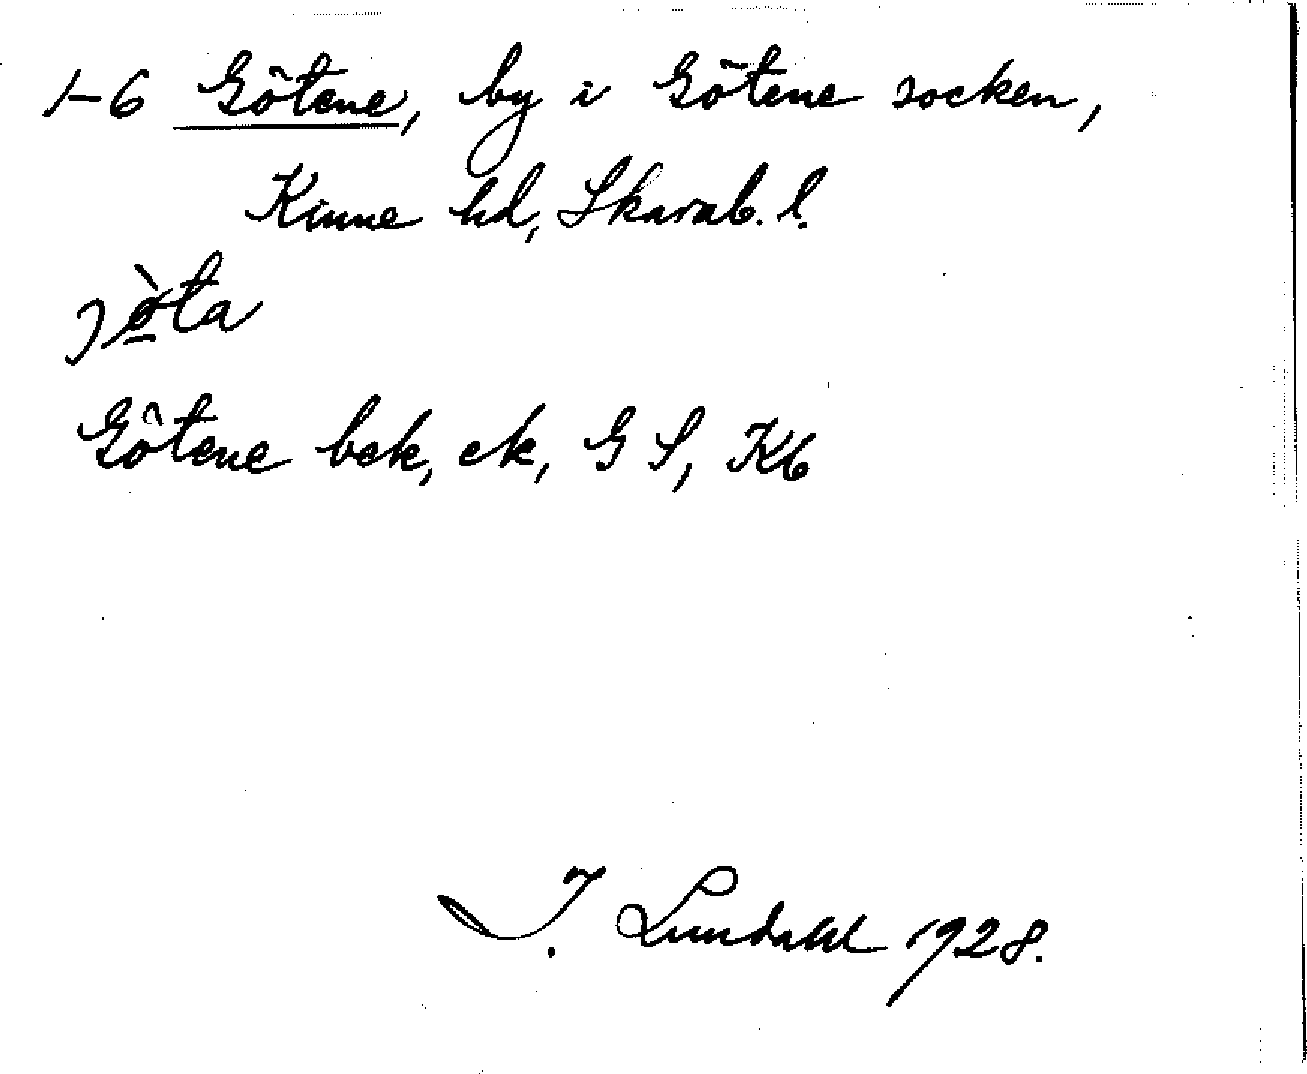 1-6 Götene, by i Götene socken,
Kinne hd, Skarab. l.
jø̀ta
Götene bek, ek, GS, Kb
I. Lundahl 1928.